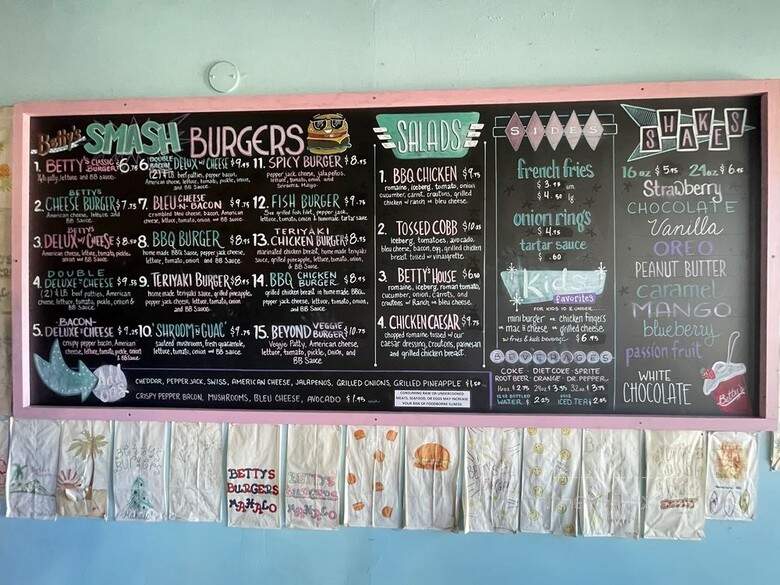 Betty's SMASH BURGERS
1. BETTY'S CLASSIC BURGER $6.75
¼ lb patty, lettuce, and BB sauce.
2. BETTY'S CHEESE BURGER $7.75
American cheese, lettuce and BB Sauce.
3. BETTY'S DELUX W/ CHEESE $8.45
American cheese, lettuce, tomato, pickle, onion and BB Sauce.
4. DOUBLE DELUXE W/ CHEESE $9.55
(2) ¼ LB beef patties, American cheese, lettuce, tomato, pickle, onion & BB Sauce
5. BACON DELUXE W/ CHEESE $9.25
crispy pepper bacon, American cheese, lettuce, tomato, pickle, onion & BB Sauce
6. DOUBLE BACON DELUX W/ CHEESE $9.95
(2) ¼ LB beef patties, pepper bacon, American cheese, lettuce, tomato, pickle, onion, and BB Sauce.
7. BLEU CHEESE N BACON $9.75
crumbled bleu cheese, bacon, American cheese, lettuce, tomato, onion and BB sauce.
8. BBQ BURGER $8.95
home made BBQ Sauce, pepper jack cheese, lettuce, tomato, onion, and BB Sauce.
9. TERIYAKI BURGER $8.95
home made teriyaki sauce, grilled pineapple, pepper jack cheese, lettuce, tomato, onion and BB Sauce
10. 'SHROOM N GUAC $9.75
sauteed mushroom, fresh guacamole, lettuce, tomato, onion and BB Sauce.
11. SPICY BURGER $8.95
pepper jack cheese, jalapeños, lettuce, tomato, onion, and
12. FISH BURGER $9.75
grilled fish filet, pepper jack, lettuce, tomato, onion & homemade tartar sauce
13. TERIYAKI CHICKEN BURGER $8.95
marinated chicken breast, home made teriyaki sauce, grilled pineapple, lettuce, tomato, onion, & BB Sauce
14. BBQ CHICKEN BURGER $8.95
grilled chicken breast w/ home made BBQ, pepper jack cheese, lettuce, tomato, onion, and BB Sauce
15. BEYOND VEGGIE BURGER $10.75
Veggie Patty, American cheese, lettuce, tomato, pickle, onion, and BB Sauce
CHEDDAR, PEPPER JACK, SWISS, AMERICAN CHEESE, JALAPENOS, GRILLED ONIONS, GRILLED PINEAPPLE $1.50
CRISPY PEPPER BACON, MUSHROOMS, BLEU CHEESE, AVOCADO $1.95
CONSUMING RAW OR UNDERCOOKED
MEATS, SEAFOOD, OR EGGS MAY INCREASE
YOUR RISK OF FOODBORNE ILLNESS
SALADS
1. BBQ CHICKEN $9.75
romaine, iceberg, tomato, onion
cucumber, carrot, croutons, grilled
chicken w/ ranch or bleu cheese.
2. TOSSED COBB $10.25
Iceberg, tomatoes, avocado,
bleu cheese, bacon, egg, grilled chicken
breast tossed w/ vinaigrette.
3. BETTY'S HOUSE $6.50
romaine, iceberg, roman tomato,
cucumber, onion, carrots, and
croutons w/ Ranch or bleu cheese.
4. CHICKEN CAESAR $9.75
chopped romaine tossed w/ our
caesar dressing, croutons, parmesan
and grilled chicken breast.
SIDES
french fries
onion rings
$4.75
tartar sauce
$.60
Kids
favorites
FOR KIDS 10 & UNDER
mini burger or chicken fingers
or mac n cheese or grilled cheese
w/ fries & kids beverage $6.95
BEVERAGES
COKE · DIET COKE · SPRITE
ROOT BEER · ORANGE · DR. PEPPER
16oz $2.75 24oz $3.35 32oz $3.75
WATER $2.25 ICED TEA $2.95
SHAKES
16 oz $5.95 24 oz $6.95
Strawberry
CHOCOLATE
Vanilla
OREO
PEANUT BUTTER
caramel
MANGO
blueberry
passion fruit
WHITE
CHOCOLATE
Betty's
BETTYS
BURGERS
MAHALO
BETTYS
BURGERS
MAHALO